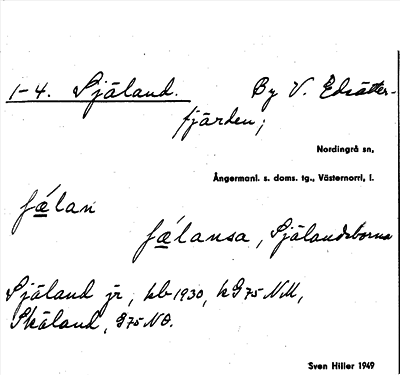 1-4. Själand. By V. Edsätter-
fjärden;
Nordingrå sn,
Ångermanl. s. doms. tg., Västernorrl. l.
fǽlan
fǽlansa, Själandsborna
Själand jr, kb 1930, kG75 NM,
Skäland, G75 NO.
Sven Hiller 1949